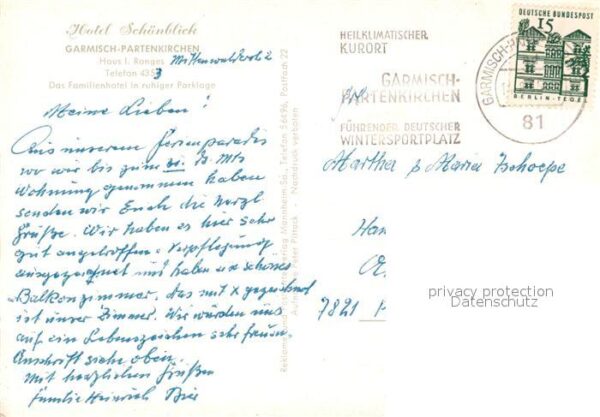 Hotel Schönblick
GARMISCH-PARTENKIRCHEN
Haus I. Ranges Mittenwalderstr 2
Telefon 4353 3
Das Familienhotel in ruhiger Parklage
Meine Lieben!
Aus unserem Ferienparadis
wo wir bis zum d. Mts
Wohnung genommen haben
senden wir Euch die herzl
Grüße. Wir haben es hier sehr
gut angetroffen. Verpflegung
ausgezeichnet und haben ein schönes
Balkonzimmer. Das mit X gezeichnet
ist unser Zimmer. Wir würden uns
auf ein Lebenszeichen sehr freuen.
Anschrift siehe oben.
Mit herzlichen Grüßen
Familie Heinrich
Mannheim-Sa., Telefon 56696, Postfach 22
Nachdruck verboten
HEILKLIMATISCHER
KURORT
GARMISCH-
PARTENKIRCHEN
FÜHRENDER DEUTSCHER
WINTERSPORTPLATZ
GARMISCH-P
81
DEUTSCHE BUNDESPOST
15
BERLIN-TEGEL
Martha & Maria Zschoepe
7821
privacy protection
Datenschutz